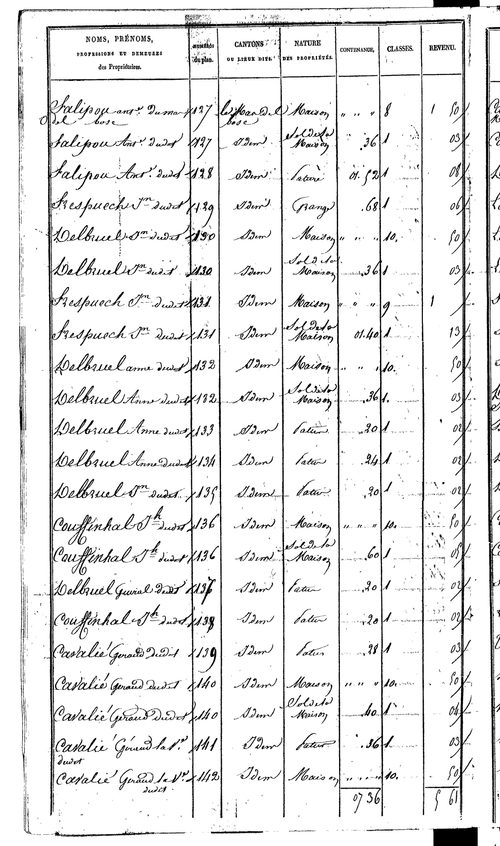 NOMS, PRÉNOMS, PROFESSIONS ET DEMEURES des Propriétaires. numéros du plan. CANTONS OU LIEUX DITS. NATURE DES PROPRIÉTÉS. CONTENANCE. CLASSES. REVENU.
Salipou ant. du mas del bosc 127 le Mas del bosc Maison " " " 8 1 50
Salipou Ant. dudot 127 Idem Sol de la Maison .36 1 03
Salipou Ant. dudot 128 Idem Pature 01.52 1 08
Frespuech Jn dudot 129 Idem Grange .68 1 06
Delbruel Jn dudot 130 Idem Maison " " " 10. 50
Delbruel Jn dudot 130 Idem Sol de la Maison .36 1 03
Frespuech Jn dudot 131 Idem Maison " " " 9 1
Frespuech Jn dudot 131 Idem Sol de la Maison 01.40 1 13
Delbruel anne dudot 132 Idem Maison " " " 10. 50
Delbruel Anne dudot 132 Idem Sol de la Maison .36 1. 03
Delbruel Anne dudot 133 Idem Patur .20 1 02
Delbruel Anne dudot 134 Idem Patur .24 1 02
Delbruel Jn dudot 135 Idem Patur .20 1 02
Couffinhal Jh dudot 136 Idem Maison " " " 10. 50
Couffinhal Jh dudot 136 Idem Sol de la Maison .60 1 05
Delbruel dudot 137 Idem Patur .20 1 02
Couffinhal Jh dudot 138 Idem Patur .20 1 02
Cavalié Geraud dudot 139 Idem Patur .28 1 03
Cavalié Geraud dudot 140 Idem Maison " " " 10. 50
Cavalié Geraud dudot 140 Idem Sol de la Maison .40 1 04
Cavalié Gérand la Ve dudot 141 Idem Patur .36 1 03
Cavalié Gerand la Ve dudot 142 Idem Maison " " " 10. 50
07 36 5 61